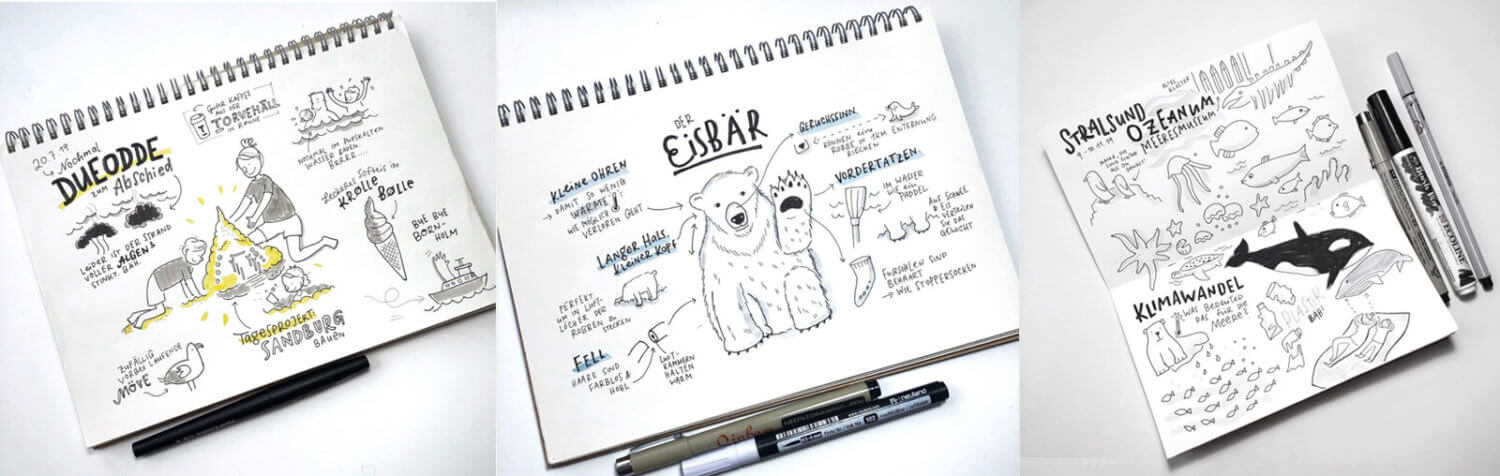 20.7.19
Nochmal
DUEODDE
zum
Abschied
Guter Kaffee
aus der
TORVEHALL
in Rønne
Nochmal im Pupskalten
Wasser baden.
Brrrr....
Leckeres Softeis im
KRØLLE
BØLLE
Leider ist der Strand
voller Algen &
stinkt. Bäh.
Bye Bye
Born-
holm
Tagesprojekt:
SANDBURG
bauen
Zufällig
vorbei laufende
Möve
DER
EISBÄR
KLEINE OHREN
→ Damit so wenig
Wärme
wie möglich
verloren geht
LANGER HALS,
KLEINER KOPF
Perfekt
um in Luft-
löcher der
Robben zu
stecken
FELL
Haare sind
farblos &
hohl
Luft-
kammern
halten
warm
GERUCHSSINN
Können eine
Robbe in 1km Enternung
riechen
VORDERTATZEN
im Wasser
wie ein
Paddel
Auf Schnee
& Eis
verteilen
sie das
Gewicht
Fußsohlen sind
behaart
→ wie Stoppersocken
neuland
STRALSUND
OZEANUM
MEERESMUSEUM
9.-10.11.19
Altes
Kloster
KLIMAWANDEL
Was bedeuted
das für die
Meere?
PLASTIK
BÄH!